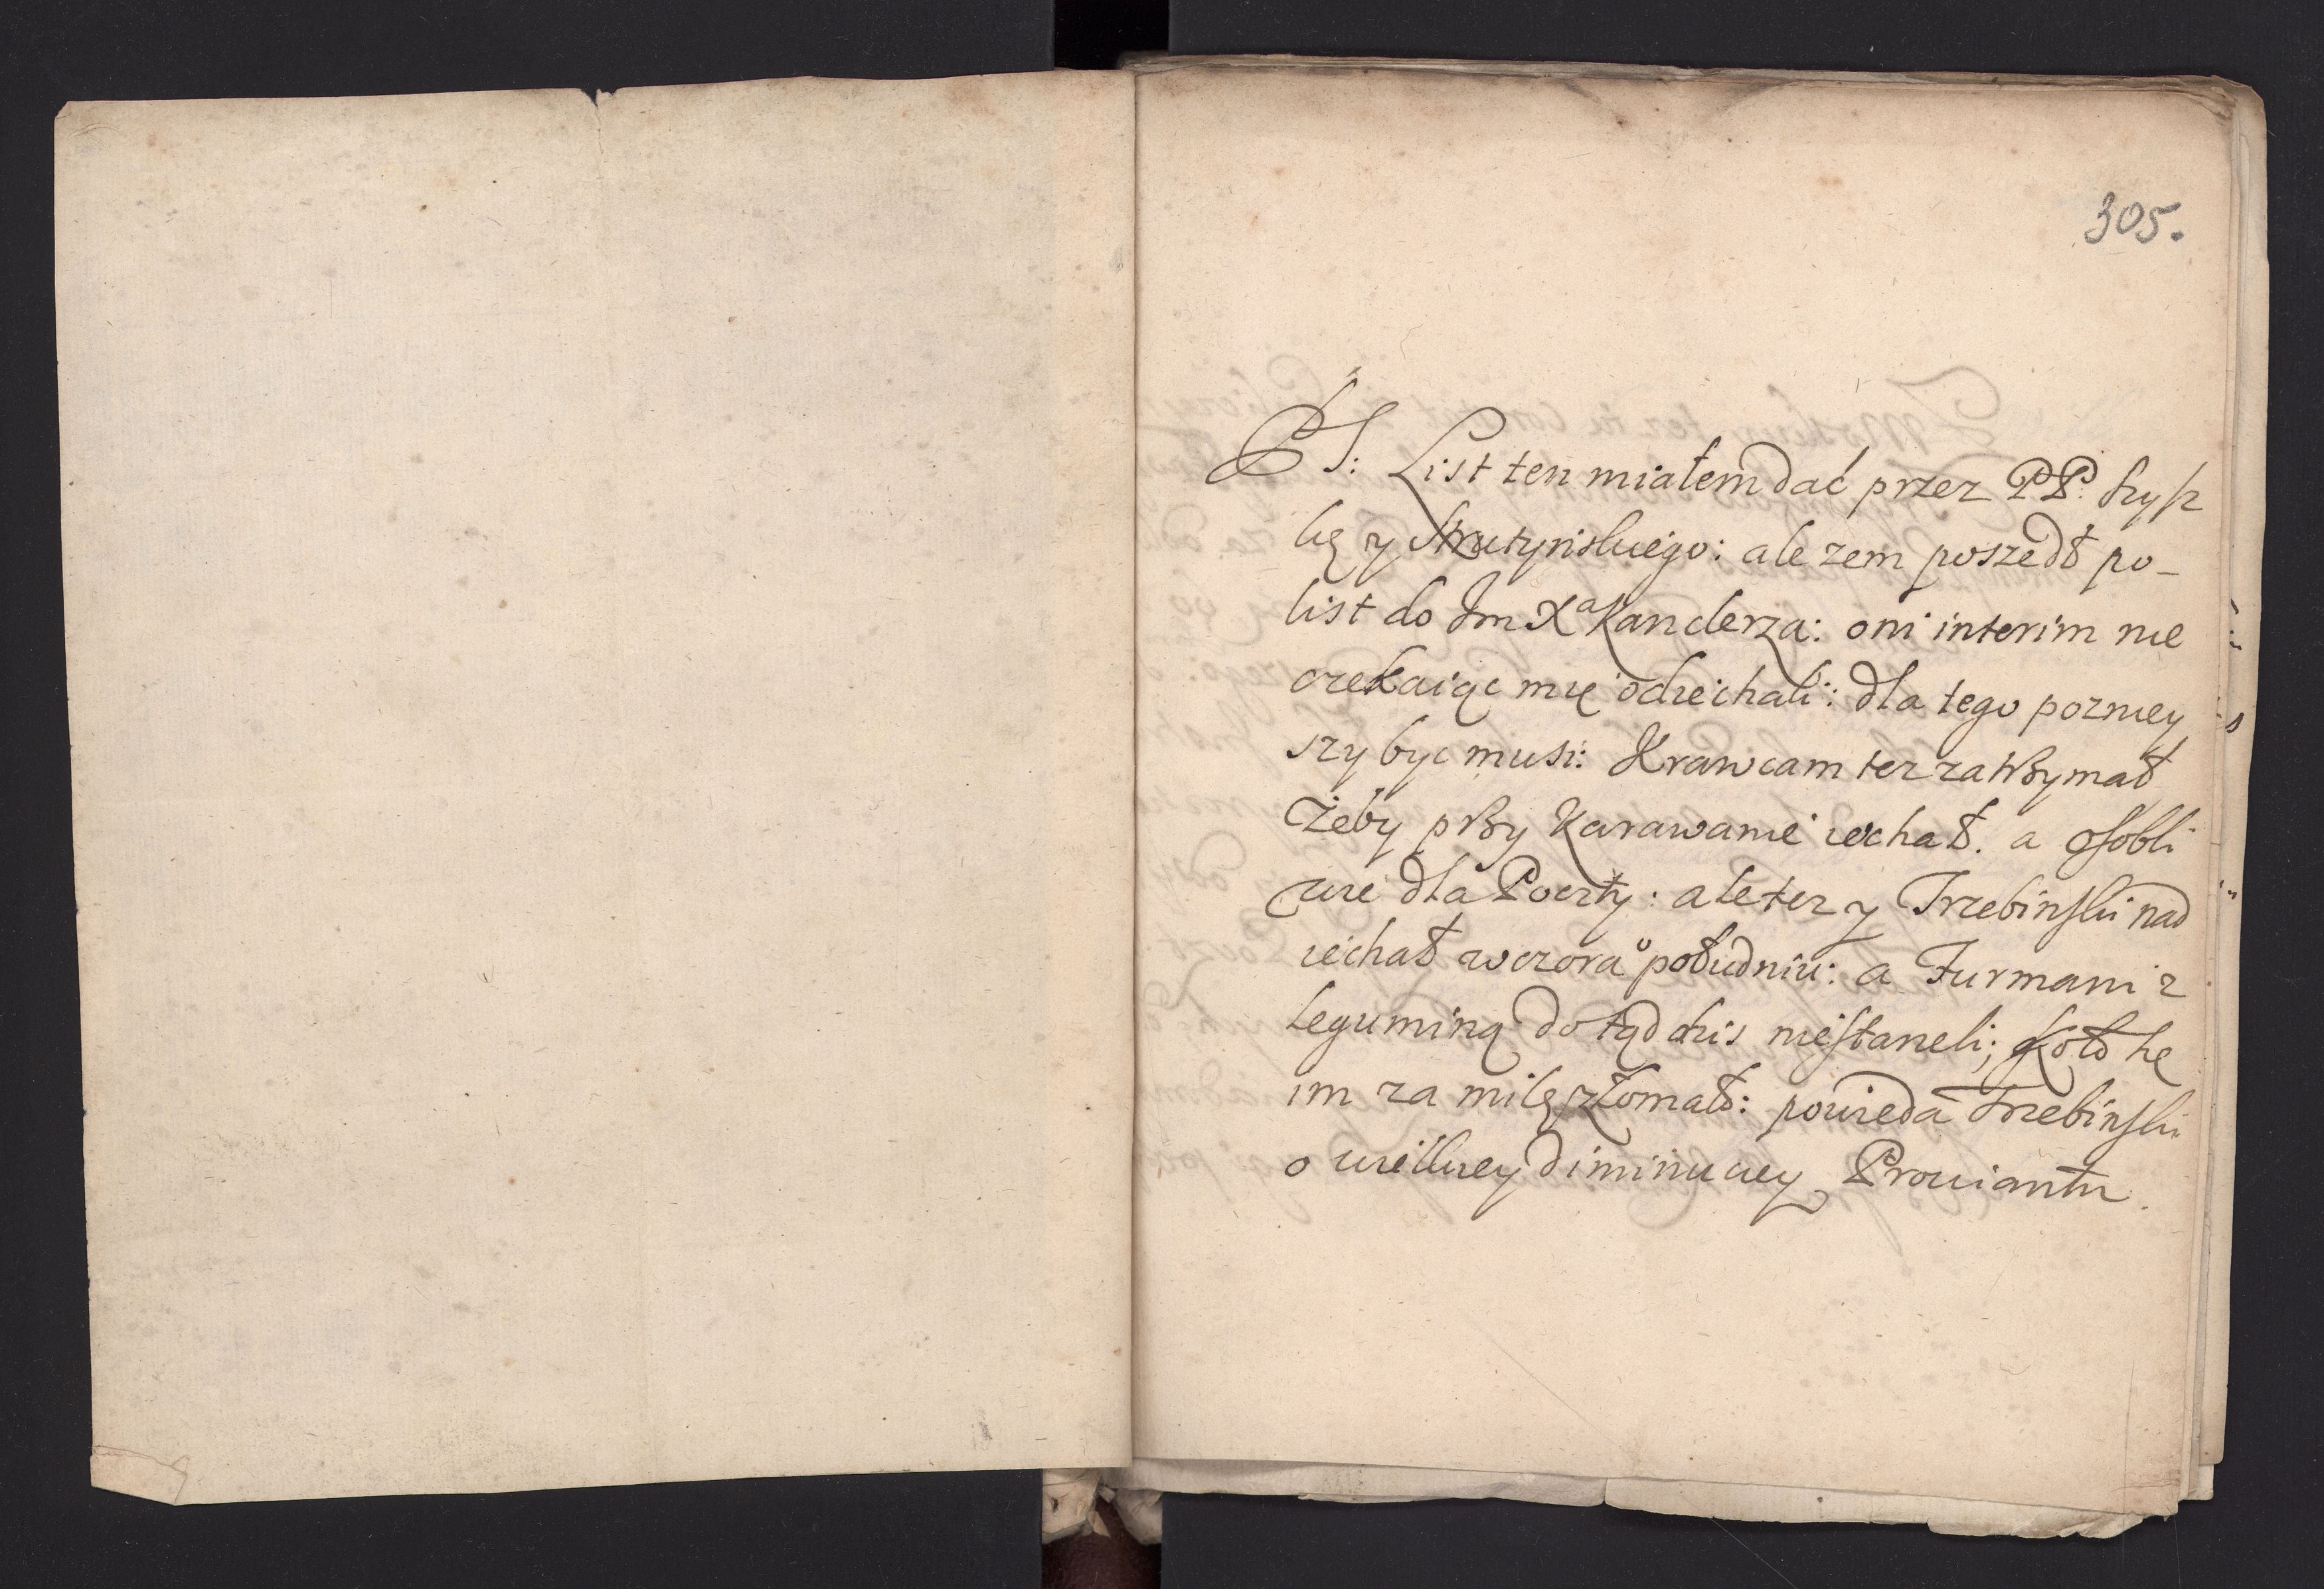 305.
PS: List ten miałem dać przez PP. Szysz
kę y Strutyńskiego: ale zem poszedł po-
list do Jm Xa Kanclerza: oni interim nie
czekaiąc mię odiechali: dla tego pozniey
szy byc musi: Krawcam tez zatrzymał
Żeby przy Karawanie iechał. a osobli
wie dla Poczty: ale tez y Trzebinski nad
iechał wczora o południu: a Furmani z
leguminą dotąd dzis niestaneli; Koło sie
im za milę złomało: powieda Trzebinski
o wielkiey diminucyey Prowiantu.